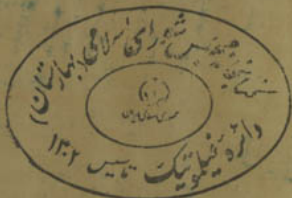 کتابخانه مجلس شورای اسلامی (بهارستان)
جمهوری اسلامی ایران
دائره فیلموتیک تاسیس ۱۳۰۲